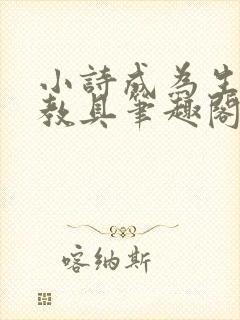 小詩成為生
教具筆趣閣
喀纳斯